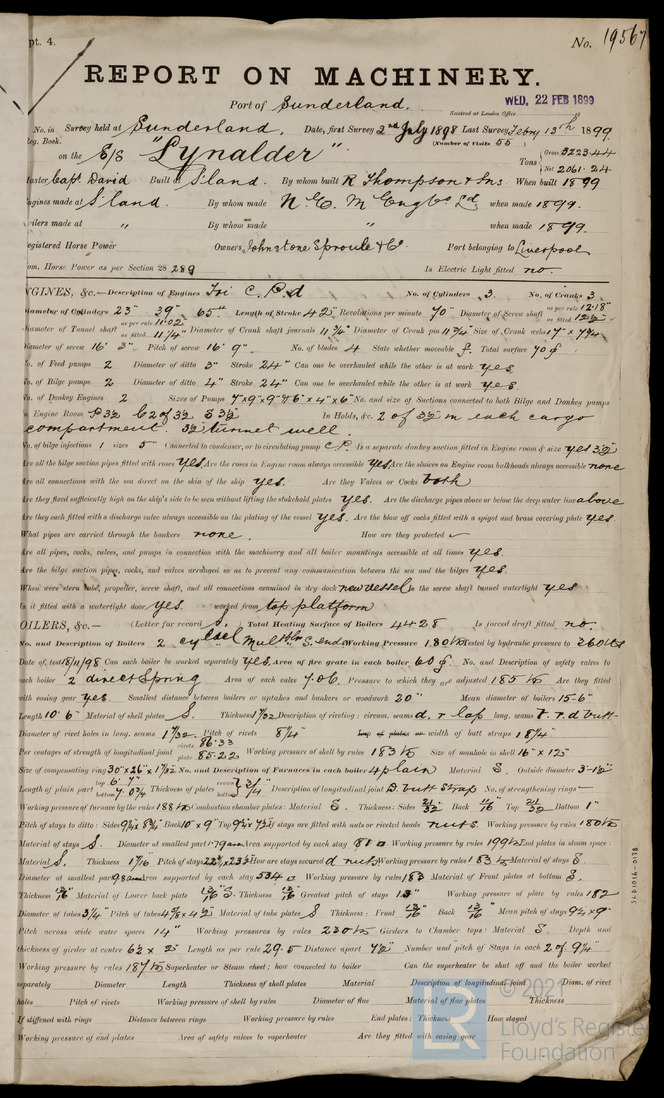 pt. 4.
No. 19567
REPORT ON MACHINERY.
Port of Sunderland.
Received at London Office
WED, 22 FEB 1899
No. in Survey held at Sunderland. Date, first Survey 2nd July 1898 Last Survey Febry 13th 1899.
Reg. Book. (Number of Visits 55)
on the S/S "Lynalder" Tons Gross 3223.44
Net 2061.24
Master Capt David Built at S'land. By whom built R Thompson & Sns When built 1899
Engines made at S'land. By whom made N. E. M Eng Co Ld when made 1899.
Boilers made at " By whom made " when made 1899.
Registered Horse Power Owners Johnstone Sproule & Co Port belonging to Liverpool
Nom. Horse Power as per Section 28 289 Is Electric Light fitted no.
ENGINES, &c.—Description of Engines Tri C. P. d No. of Cylinders 3. No. of Cranks 3.
Diameter of Cylinders 23" 39" 65" Length of Stroke 42" Revolutions per minute 70 Diameter of Screw shaft as per rule 12.18"
as fitted
Diameter of Tunnel shaft as per rule 11.02 as fitted 11 1/4" Diameter of Crank shaft journals 11 3/4" Diameter of Crank pin 11 3/4" Size of Crank webs 17" × 7 3/4"
Diameter of screw 16' 3" Pitch of screw 16' 9" No. of blades 4 State whether moveable Total surface 70
No. of Feed pumps 2 Diameter of ditto 3" Stroke 24" Can one be overhauled while the other is at work yes
No. of Bilge pumps 2 Diameter of ditto 4" Stroke 24" Can one be overhauled while the other is at work yes
No. of Donkey Engines 2 Sizes of Pumps 7"×9"×9" & 6"×4"×6" No. and size of Suctions connected to both Bilge and Donkey pumps
In Engine Room P 3 1/2 C 2 of 3 1/2 S 3 1/2 In Holds, &c. 2 of 3 1/2" in each cargo
compartment. 3 1/2" tunnel well.
No. of bilge injections 1 sizes 5" Connected to condenser, or to circulating pump C.P. Is a separate donkey suction fitted in Engine room & size yes 3 1/2"
Are all the bilge suction pipes fitted with roses yes. Are the roses in Engine room always accessible yes Are the sluices on Engine room bulkheads always accessible none
Are all connections with the sea direct on the skin of the ship yes. Are they Valves or Cocks both
Are they fixed sufficiently high on the ship's side to be seen without lifting the stokehold plates yes. Are the discharge pipes above or below the deep water line above
Are they each fitted with a discharge valve always accessible on the plating of the vessel yes. Are the blow off cocks fitted with a spigot and brass covering plate yes.
What pipes are carried through the bunkers none. How are they protected
Are all pipes, cocks, valves, and pumps in connection with the machinery and all boiler mountings accessible at all times yes.
Are the bilge suction pipes, cocks, and valves arranged so as to prevent any communication between the sea and the bilges yes.
When were stern tube, propeller, screw shaft, and all connections examined in dry dock new vessel Is the screw shaft tunnel watertight yes
Is it fitted with a watertight door yes. worked from top platform
BOILERS, &c.— (Letter for record S. Total Heating Surface of Boilers 4428 Is forced draft fitted no.
No. and Description of Boilers 2 cyl Mult S. end Working Pressure 180 lb Tested by hydraulic pressure to 360 lbs
Date of test 18/11/98 Can each boiler be worked separately yes Area of fire grate in each boiler 60 No. and Description of safety valves to
each boiler 2 direct Spring Area of each valve 7.06 Pressure to which they are adjusted 185 lb Are they fitted
with easing gear yes. Smallest distance between boilers or uptakes and bunkers or woodwork 20" Mean diameter of boilers 15-6"
Length 10' 6" Material of shell plates S. Thickness 1 7/32 Description of riveting: circum. seams d. r lap long. seams t. r. d butt
Diameter of rivet holes in long. seams 1 7/32 Pitch of rivets 8 1/4" Lap of plates or width of butt straps 18 1/4"
Per centages of strength of longitudinal joint rivets 86.33 plate 85.22 Working pressure of shell by rules 183 lb Size of manhole in shell 16" × 12"
Size of compensating ring 30"×26"×1 7/32 No. and Description of Furnaces in each boiler 4 plain Material S. Outside diameter 3-1 1/2"
Length of plain part top 6' 7" bottom Thickness of plates crown bottom 3/4 Description of longitudinal joint D butt strap No. of strengthening rings
Working pressure of furnace by the rules 188 lb Combustion chamber plates: Material S. Thickness: Sides 21/32 Back 11/16 Top 21/32 Bottom 1"
Pitch of stays to ditto: Sides Back 10" × 9" Top If stays are fitted with nuts or riveted heads nuts. Working pressure by rules 180 lb
Material of stays S. Diameter at smallest part Area supported by each stay 81 Working pressure by rules 199 lb End plates in steam space:
Material S. Thickness 1 1/16 Pitch of stays How are stays secured d nuts Working pressure by rules 183 lb Material of stays S.
Diameter at smallest part Area supported by each stay 534 Working pressure by rules 183 Material of Front plates at bottom S.
Thickness 13/16 Material of Lower back plate S. Thickness 13/16 Greatest pitch of stays 13" Working pressure of plate by rules 182
Diameter of tubes 3 1/4" Pitch of tubes Material of tube plates S Thickness: Front 13/16 Back 13/16 Mean pitch of stays
Pitch across wide water spaces 14" Working pressures by rules 230 lb Girders to Chamber tops: Material S. Depth and
thickness of girder at centre Length as per rule 29.5 Distance apart 7 1/2" Number and pitch of Stays in each 2 of 9 1/4"
Working pressure by rules 187 lb Superheater or Steam chest; how connected to boiler Can the superheater be shut off and the boiler worked
separately Diameter Length Thickness of shell plates Material Description of longitudinal joint Diam. of rivet
holes Pitch of rivets Working pressure of shell by rules Diameter of flue Material of flue plates Thickness
If stiffened with rings Distance between rings Working pressure by rules End plates: Thickness How stayed
Working pressure of end plates Area of safety valves to superheater Are they fitted with easing gear
SLD1016-0138
© 2021
LR
Lloyd's Register
Foundation